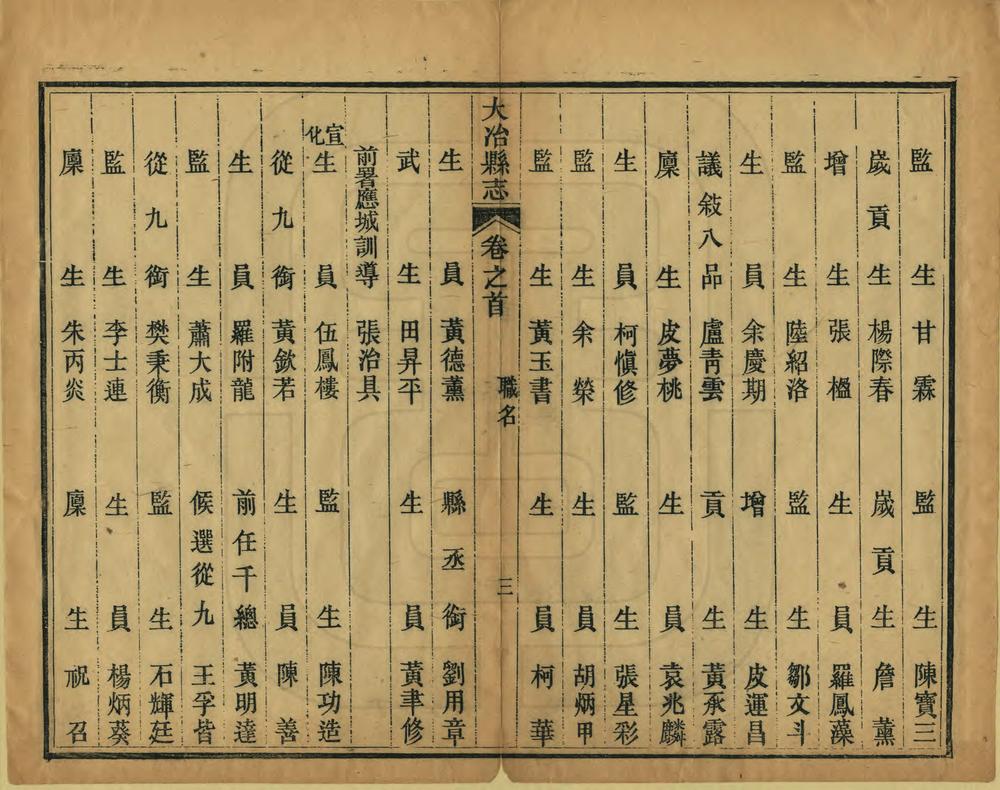 監生甘霖　監生陳寶三
嵗貢生楊際春　嵗貢生詹薰
增生張楹　生員羅鳳藻
監生陸紹洛　監生鄒文斗
生員余慶期　增生皮運昌
議敍八品盧青雲　貢生黃承露
廩生皮夢桃　生員袁兆麟
生員柯愼修　監生張星彩
監生余榮　生員胡炳甲
監生黃玉書　生員柯華
大冶縣志　卷之首　職名　三
生員黃德薰　縣丞銜劉用章
武生田昇平　生員黃聿修
前署應城訓導張治具
宣化生員伍鳳樓　監生陳功造
從九銜黃欽若　生員陳善
生員羅附龍　前任千總黃明達
監生蕭大成　候選從九王孚喈
從九銜樊秉衡　監生石輝廷
監生李士連　生員楊炳葵
廩生朱丙炎　廩生祝召